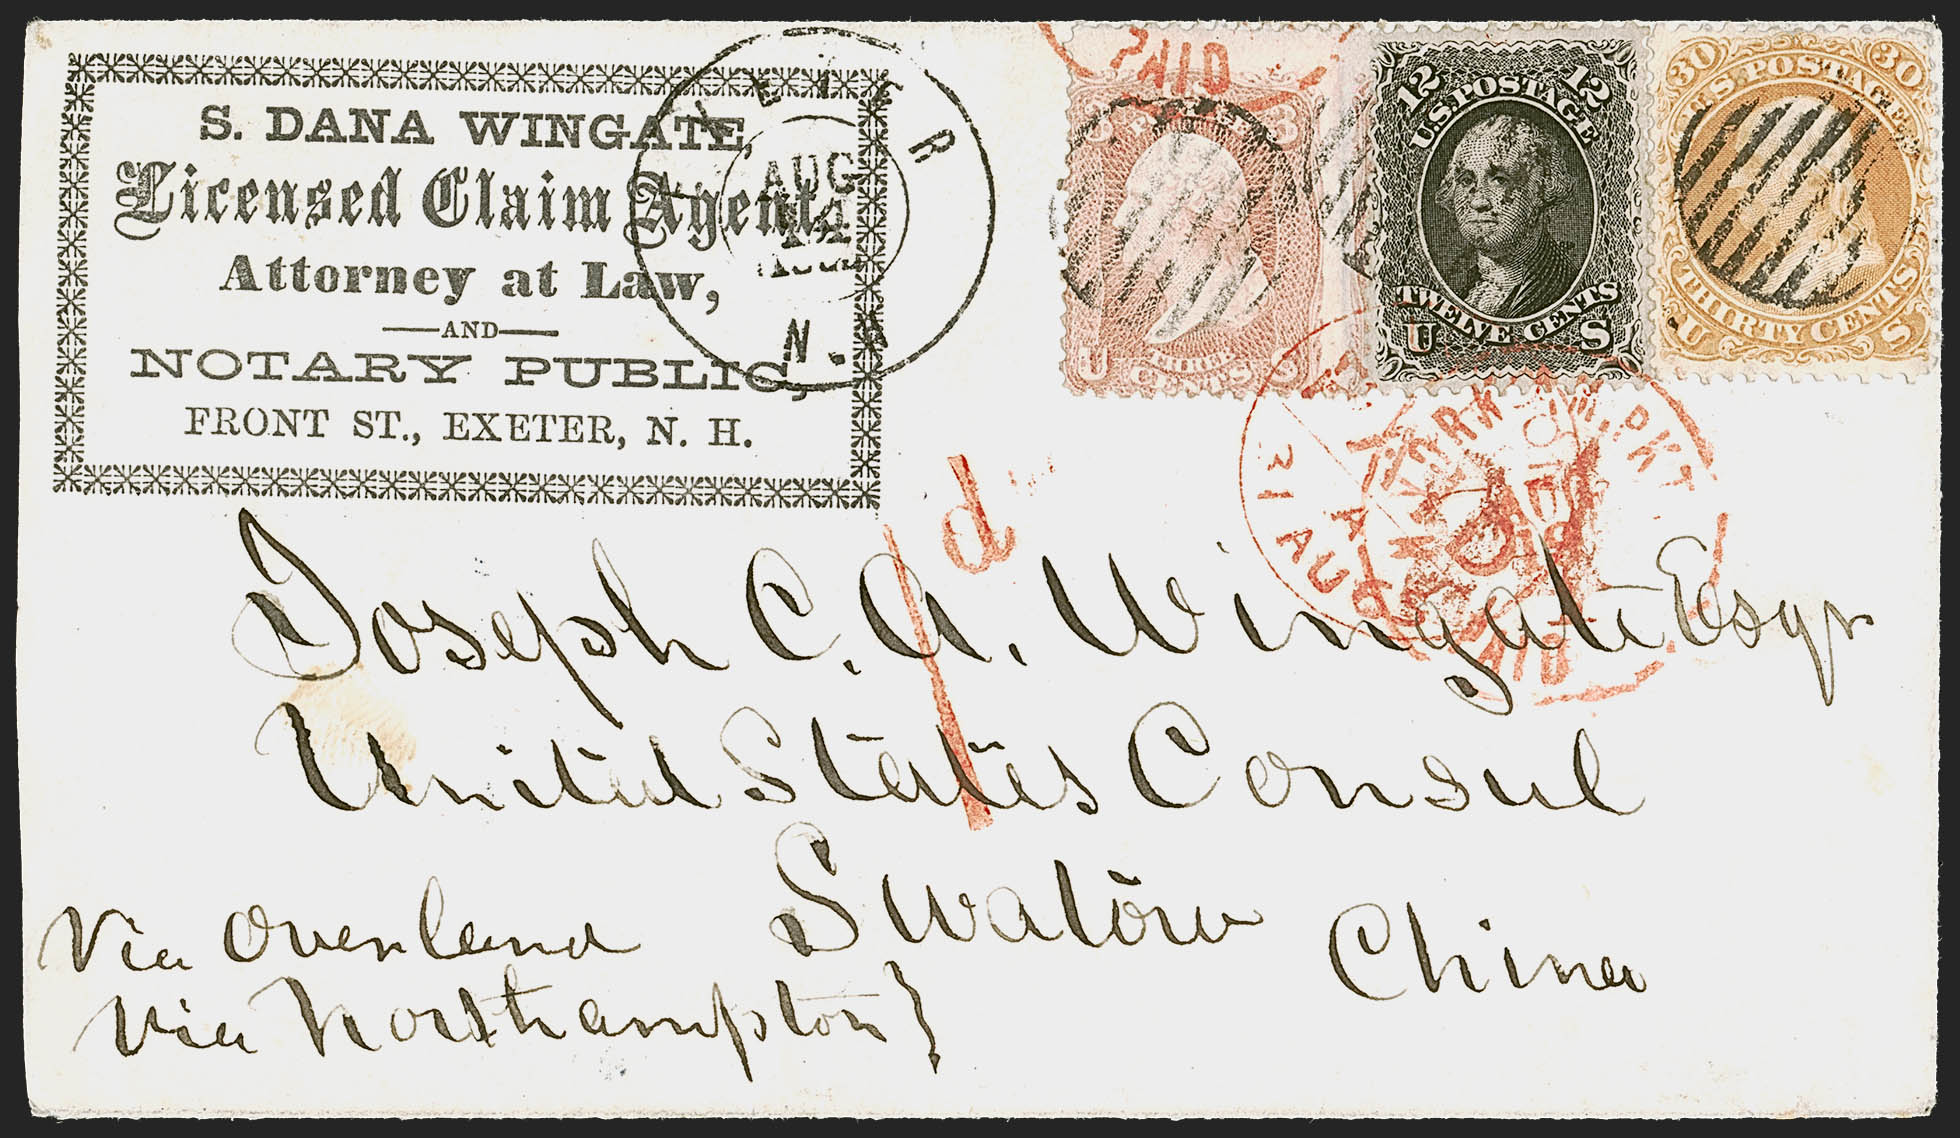 S. DANA WINGATE,
Licensed Claim Agent,
Attorney at Law,
AND
NOTARY PUBLIC,
FRONT ST., EXETER, N. H.
EXETER
AUG
N.H
PAID
3 3
U THREE S
CENTS
12 12
U.S. POSTAGE
TWELVE CENTS
U S
30 30
U.S. POSTAGE
THIRTY CENTS
U S
YORK PKT
AUG
PAID
1d
Joseph C. A. Wingate Esqr
United States Consul
Swatow
China
Via Overland
Via Northampton